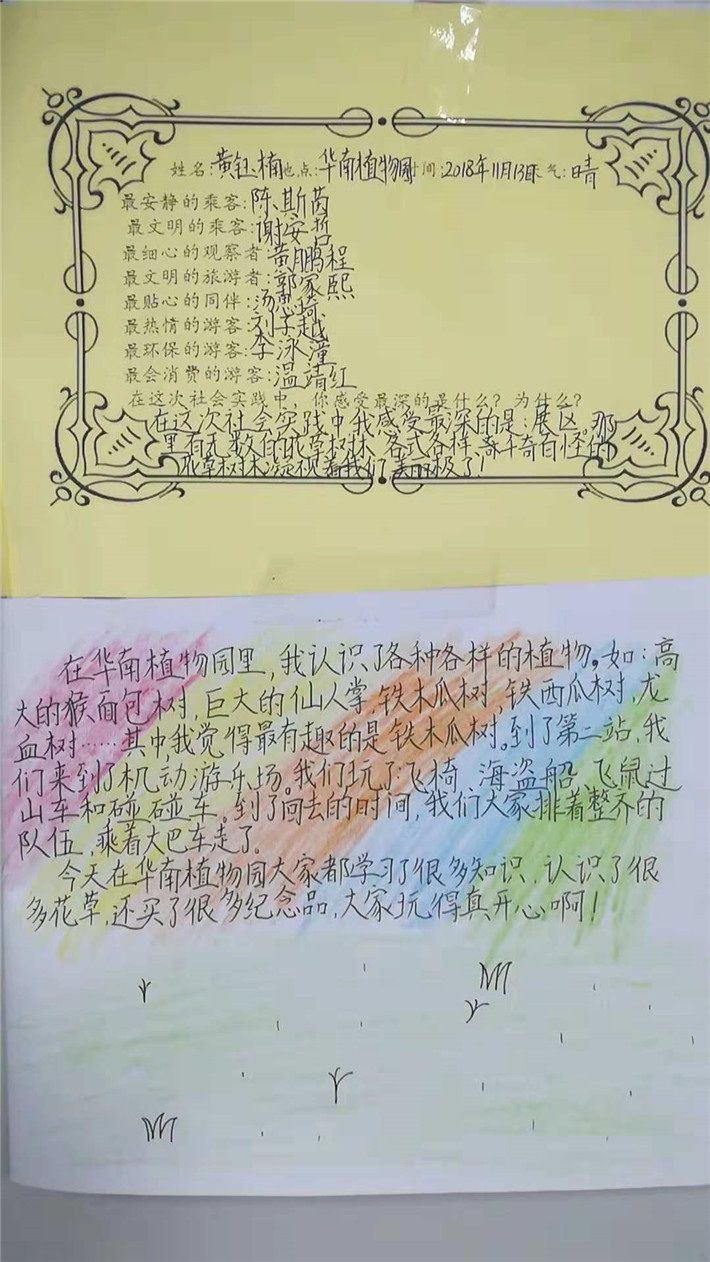 姓名:黄钰楠地点:华南植物园时间:2018年11月13日天气:晴
最安静的乘客:陈斯茵
最文明的乘客:谢安哲
最细心的观察者:黄鹏程
最文明的旅游者:郭家熙
最贴心的同伴:汤思琦
最热情的游客:刘子越
最环保的游客:李泳潼
最会消费的游客:温靖红
在这次社会实践中,你感受最深的是什么?为什么?
在这次社会实践中我感受最深的是:展区。那
里有无数的花草树林,各式各样、奇斗奇百怪的
花草树木凝视着我们,美丽极了!
在华南植物园里,我认识了各种各样的植物。如:高
大的猴面包树,巨大的仙人掌,铁木瓜树,铁西瓜树,龙
血树……其中,我觉得最有趣的是铁木瓜树。到了第二站,我
们来到了机动游乐场。我们玩了:飞椅,海盗船,飞鼠过
山车和碰碰车。到了回去的时间,我们大家排着整齐的
队伍,乘着大巴车走了。
今天在华南植物园大家都学习了很多知识,认识了很
多花草,还买了很多纪念品,大家玩得真开心啊!